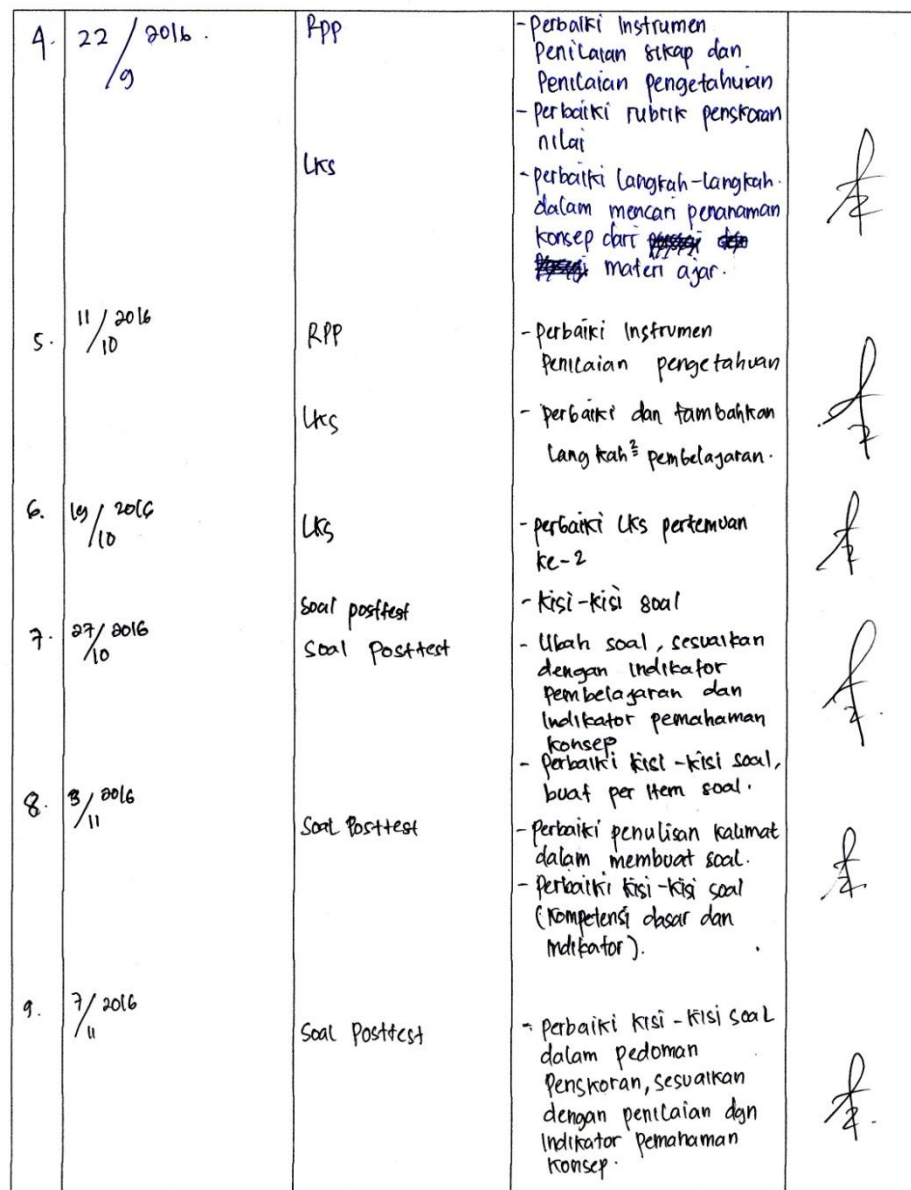 4. 22/9 2016. RPP - Perbaiki Instrumen
Penilaian sikap dan
Penilaian pengetahuan
- Perbaiki rubrik penskoran
nilai
LKS - perbaiki langkah-langkah
dalam mencari penanaman
konsep dari
materi ajar.
5. 11/10 2016 RPP - perbaiki Instrumen
Penilaian pengetahuan
LKS - perbaiki dan tambahkan
langkah² pembelajaran.
6. 19/10 2016 LKS - perbaiki LKS pertemuan
ke-2
Soal posttest - kisi-kisi soal
7. 27/10 2016 Soal Posttest - Ubah soal, sesuaikan
dengan indikator
pembelajaran dan
Indikator pemahaman
konsep
- Perbaiki kisi-kisi soal,
buat per item soal.
8. 3/11 2016 Soal Posttest - Perbaiki penulisan kalimat
dalam membuat soal.
- Perbaiki kisi-kisi soal
(Kompetensi dasar dan
indikator).
9. 7/11 2016 Soal Posttest - perbaiki kisi-kisi soal
dalam pedoman
Penskoran, sesuaikan
dengan penilaian dgn
Indikator Pemahaman
Konsep.